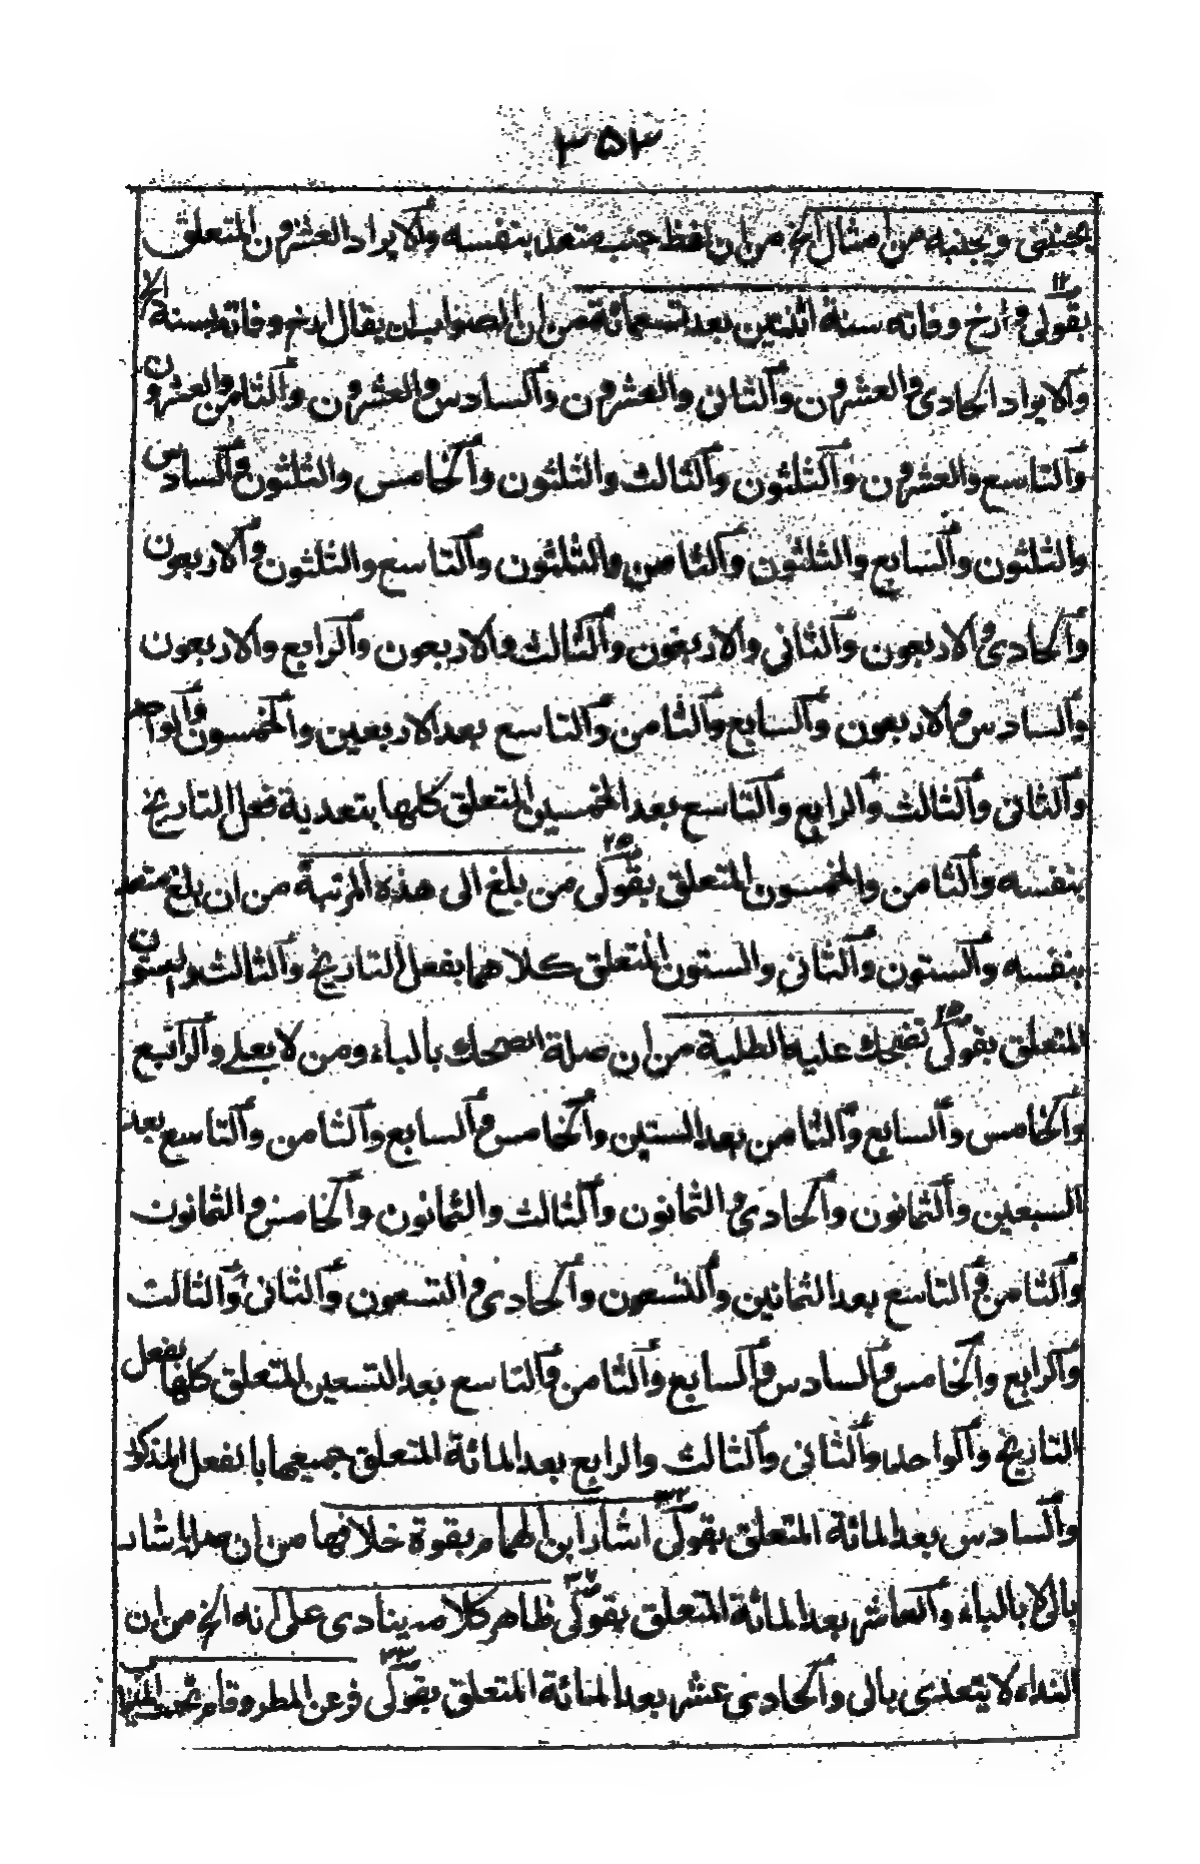 ٣٥٣
يجنبني ويجنبه من امثال الخ من ان لفظ جنب متعد بنفسه والايراد العشرون المتعلق
بقولى وأرخ وفاته سنة اثنتين بعد تسعمائة من ان الصواب ان يقال ارخ وفاته بسنة الخ
والايراد الحادى والعشرون والثانى والعشرون والسادس والعشرون والثامن والعشرون
والتاسع والعشرون والثلثون والثالث والثلثون والخامس والثلثون والسادس
والثلثون والسابع والثلثون والثامن والثلثون والتاسع والثلثون والاربعون
والحادى والاربعون والثانى والاربعون والثالث والاربعون والرابع والاربعون
والسادس والاربعون والسابع والثامن والتاسع بعد الاربعين والخمسون والواحد
والثانى والثالث والرابع والتاسع بعد الخمسين المتعلق كلها بتعدية فعل التاريخ
بنفسه والثامن والخمسون المتعلق بقولى من بلغ الى هذه المرتبة من ان بلغ متعد
بنفسه والستون والثانى والستون المتعلق كلاهما بفعل التاريخ والثالث والستون
المتعلق بقولى تضحك عليه الطلبة من ان صلة الضحك بالباء ومن لا بعلى والرابع
والخامس والسابع والثامن بعد الستين والخامس والسابع والثامن والتاسع بعد
السبعين والثمانون والحادى والثمانون والثالث والثمانون والخامس والثمانون
والثامن والتاسع بعد الثمانين والتسعون والحادى والتسعون والثانى والثالث
والرابع والخامس والسادس والسابع والثامن والتاسع بعد التسعين المتعلق كلها بفعل
التاريخ والواحد والثانى والثالث والرابع بعد المائة المتعلق جميعها بالفعل المذكور
والسادس بعد المائة المتعلق بقولى اشار ابن الهمام بقوة خلافها من ان صلة اشار
بالى لا بالباء والعاشر بعد المائة المتعلق بقولى ظاهر كلامه ينادى على انه الخ من ان
النداء لا يتعدى بالى والحادى عشر بعد المائة المتعلق بقولى فرعن المطر وقام تحت